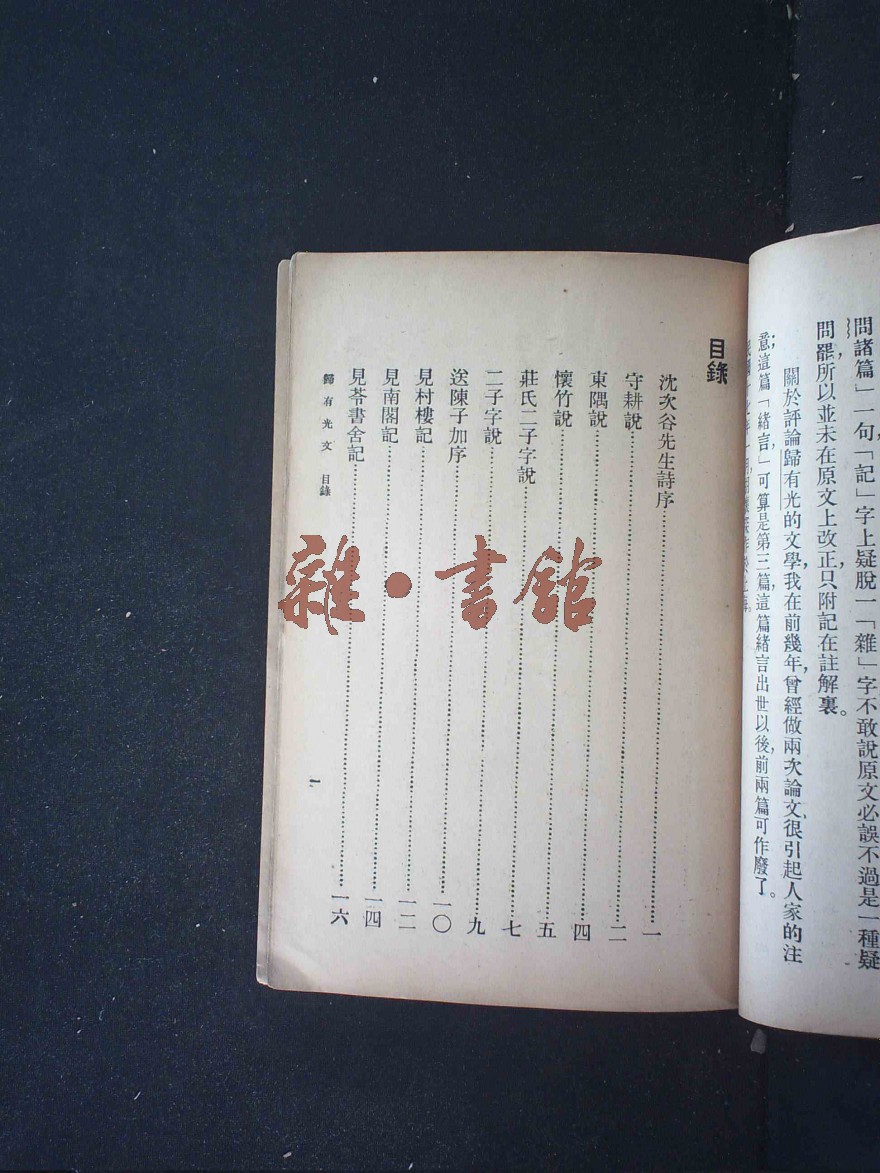 問諸篇」一句，「記」字上疑脫一「雜」字不敢說原文必誤不過是一種疑
問罷，所以並未在原文上改正，只附記在註解裏。
關於評論歸有光的文學，我在前幾年，曾經做兩次論文，很引起人家的注
意；這篇「緒言」，可算是第三篇，這篇緒言出世以後，前兩篇可作廢了。
目錄
沈次谷先生詩序……一
守耕說……二
東隅說……四
懷竹說……五
莊氏二子字說……七
二子字說……九
送陳子加序……一〇
見村樓記……一二
見南閣記……一四
見苓書舍記……一六
歸有光文 目錄
一
雜·書館